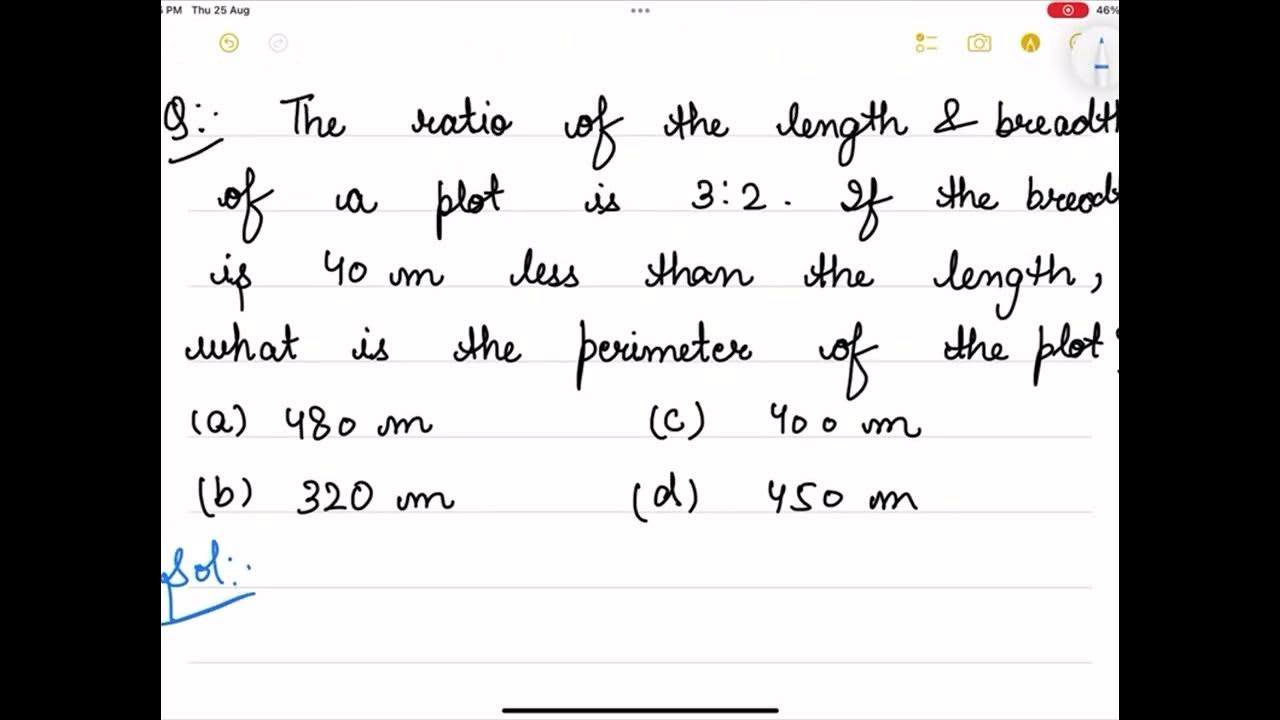 PM Thu 25 Aug
46%
Q:- The ratio of the length & breadth
of a plot is 3:2. If the bread
is 40 m less than the length,
what is the perimeter of the plot?
(a) 480 m (c) 400 m
(b) 320 m (d) 450 m
Sol:-